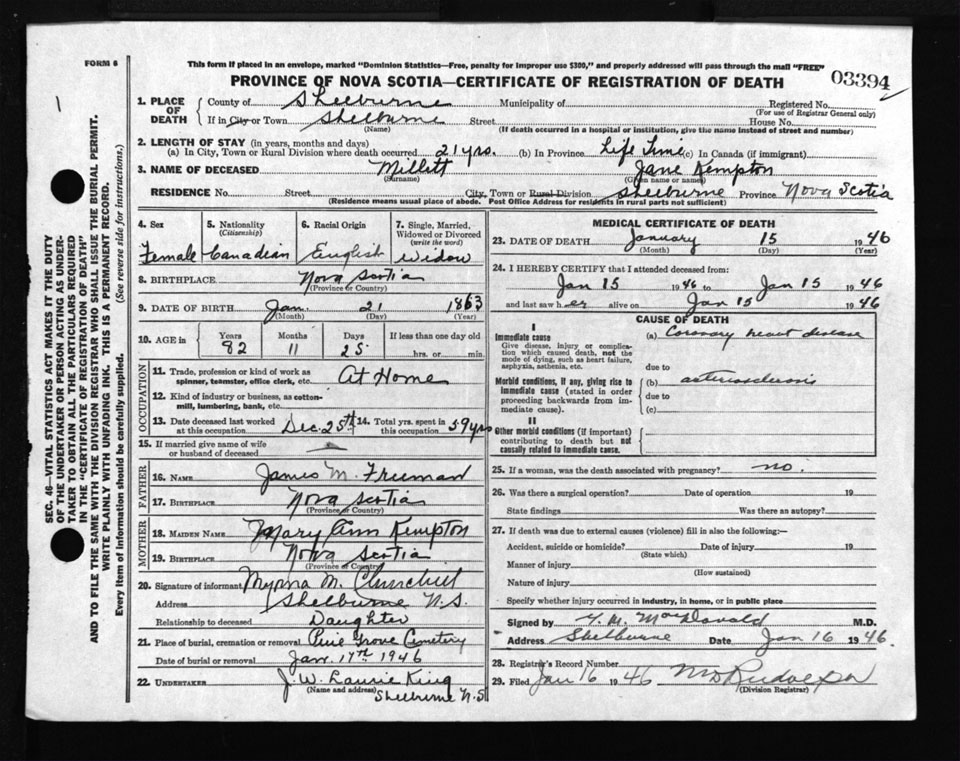 FORM 6
This form if placed in an envelope, marked "Dominion Statistics—Free, penalty for improper use $300," and properly addressed will pass through the mail "FREE"
PROVINCE OF NOVA SCOTIA—CERTIFICATE OF REGISTRATION OF DEATH
03394
SEC. 46—VITAL STATISTICS ACT MAKES IT THE DUTY
OF THE UNDERTAKER OR PERSON ACTING AS UNDER-
TAKER TO OBTAIN ALL THE PARTICULARS REQUIRED
IN THE "CERTIFICATE OF REGISTRATION OF DEATH"
AND TO FILE THE SAME WITH THE DIVISION REGISTRAR WHO SHALL ISSUE THE BURIAL PERMIT.
WRITE PLAINLY WITH UNFADING INK. THIS IS A PERMANENT RECORD.
Every item of information should be carefully supplied. (See reverse side for instructions.)
1. PLACE OF DEATH
County of Shelburne Municipality of Registered No.
(For use of Registrar General only)
If in City or Town Shelburne Street House No.
(Name) (If death occurred in a hospital or institution, give the name instead of street and number)
2. LENGTH OF STAY (in years, months and days)
(a) In City, Town or Rural Division where death occurred 21 yrs. (b) In Province Life Time (c) In Canada (if immigrant)
3. NAME OF DECEASED Millett Jane Kempton
(Surname) (Given name or names)
RESIDENCE No. Street City, Town or Rural Division Shelburne Province Nova Scotia
(Residence means usual place of abode. Post Office Address for residents in rural parts not sufficient)
4. Sex
Female
5. Nationality
(Citizenship)
Canadian
6. Racial Origin
English
7. Single, Married,
Widowed or Divorced
(write the word)
Widow
8. BIRTHPLACE Nova Scotia
(Province or Country)
9. DATE OF BIRTH Jan. 21 1863
(Month) (Day) (Year)
10. AGE in Years Months Days If less than one day old
82 11 25 hrs. or min.
OCCUPATION
11. Trade, profession or kind of work as
spinner, teamster, office clerk, etc. At Home
12. Kind of industry or business, as cotton-
mill, lumbering, bank, etc.
13. Date deceased last worked
at this occupation Dec. 25th
14. Total yrs. spent in
this occupation 59 yrs
15. If married give name of wife
or husband of deceased
FATHER
16. NAME James M. Freeman
17. BIRTHPLACE Nova Scotia
(Province or Country)
MOTHER
18. MAIDEN NAME Mary Ann Kempton
19. BIRTHPLACE Nova Scotia
(Province or Country)
20. Signature of informant Myrna M. Churchill
Address Shelburne N.S.
Relationship to deceased Daughter
21. Place of burial, cremation or removal Pine Grove Cemetery
Date of burial or removal Jan. 17th 1946
22. UNDERTAKER J. W. Laurie King
(Name and address) Shelburne N.S
MEDICAL CERTIFICATE OF DEATH
23. DATE OF DEATH January 15 1946
(Month) (Day) (Year)
24. I HEREBY CERTIFY that I attended deceased from:
Jan 15 1946 to Jan 15 1946
and last saw her alive on Jan 15 1946
CAUSE OF DEATH
I
Immediate cause
Give disease, injury or complica-
tion which caused death, not the
mode of dying, such as heart failure,
asphyxia, asthenia, etc.
(a) Coronary heart disease
due to
Morbid conditions, if any, giving rise to
immediate cause (stated in order
proceeding backwards from im-
mediate cause).
(b) arteriosclerosis
due to
(c)
II
Other morbid conditions (if important)
contributing to death but not
causally related to immediate cause.
25. If a woman, was the death associated with pregnancy? no.
26. Was there a surgical operation? Date of operation 19
State findings Was there an autopsy?
27. If death was due to external causes (violence) fill in also the following:—
Accident, suicide or homicide? Date of injury 19
(State which)
Manner of injury
(How sustained)
Nature of injury
Specify whether injury occurred in industry, in home, or in public place
Signed by MacDonald M.D.
Address Shelburne Date Jan 16 1946
28. Registrar's Record Number
29. Filed Jan 16 1946
(Division Registrar)